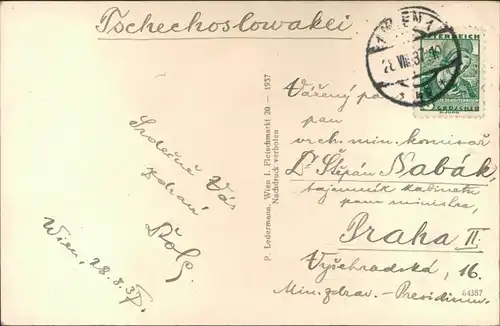 Tschechoslowakei
WIEN 1
28.VIII.37
ÖSTERREICH
GROSCHEN
Srdečně Vás
zdraví
Wien, 28.8.37.
P. Ledermann, Wien I. Fleischmarkt 20 — 1937
Nachdruck verboten
Vážený pan
pan
vrch. min. komisař
Dr Štěpán Nabák,
tajemník kabinetu
pana ministra,
Praha II.
Vyšehradská, 16.
Min. zdrav. – Presidium.
64387